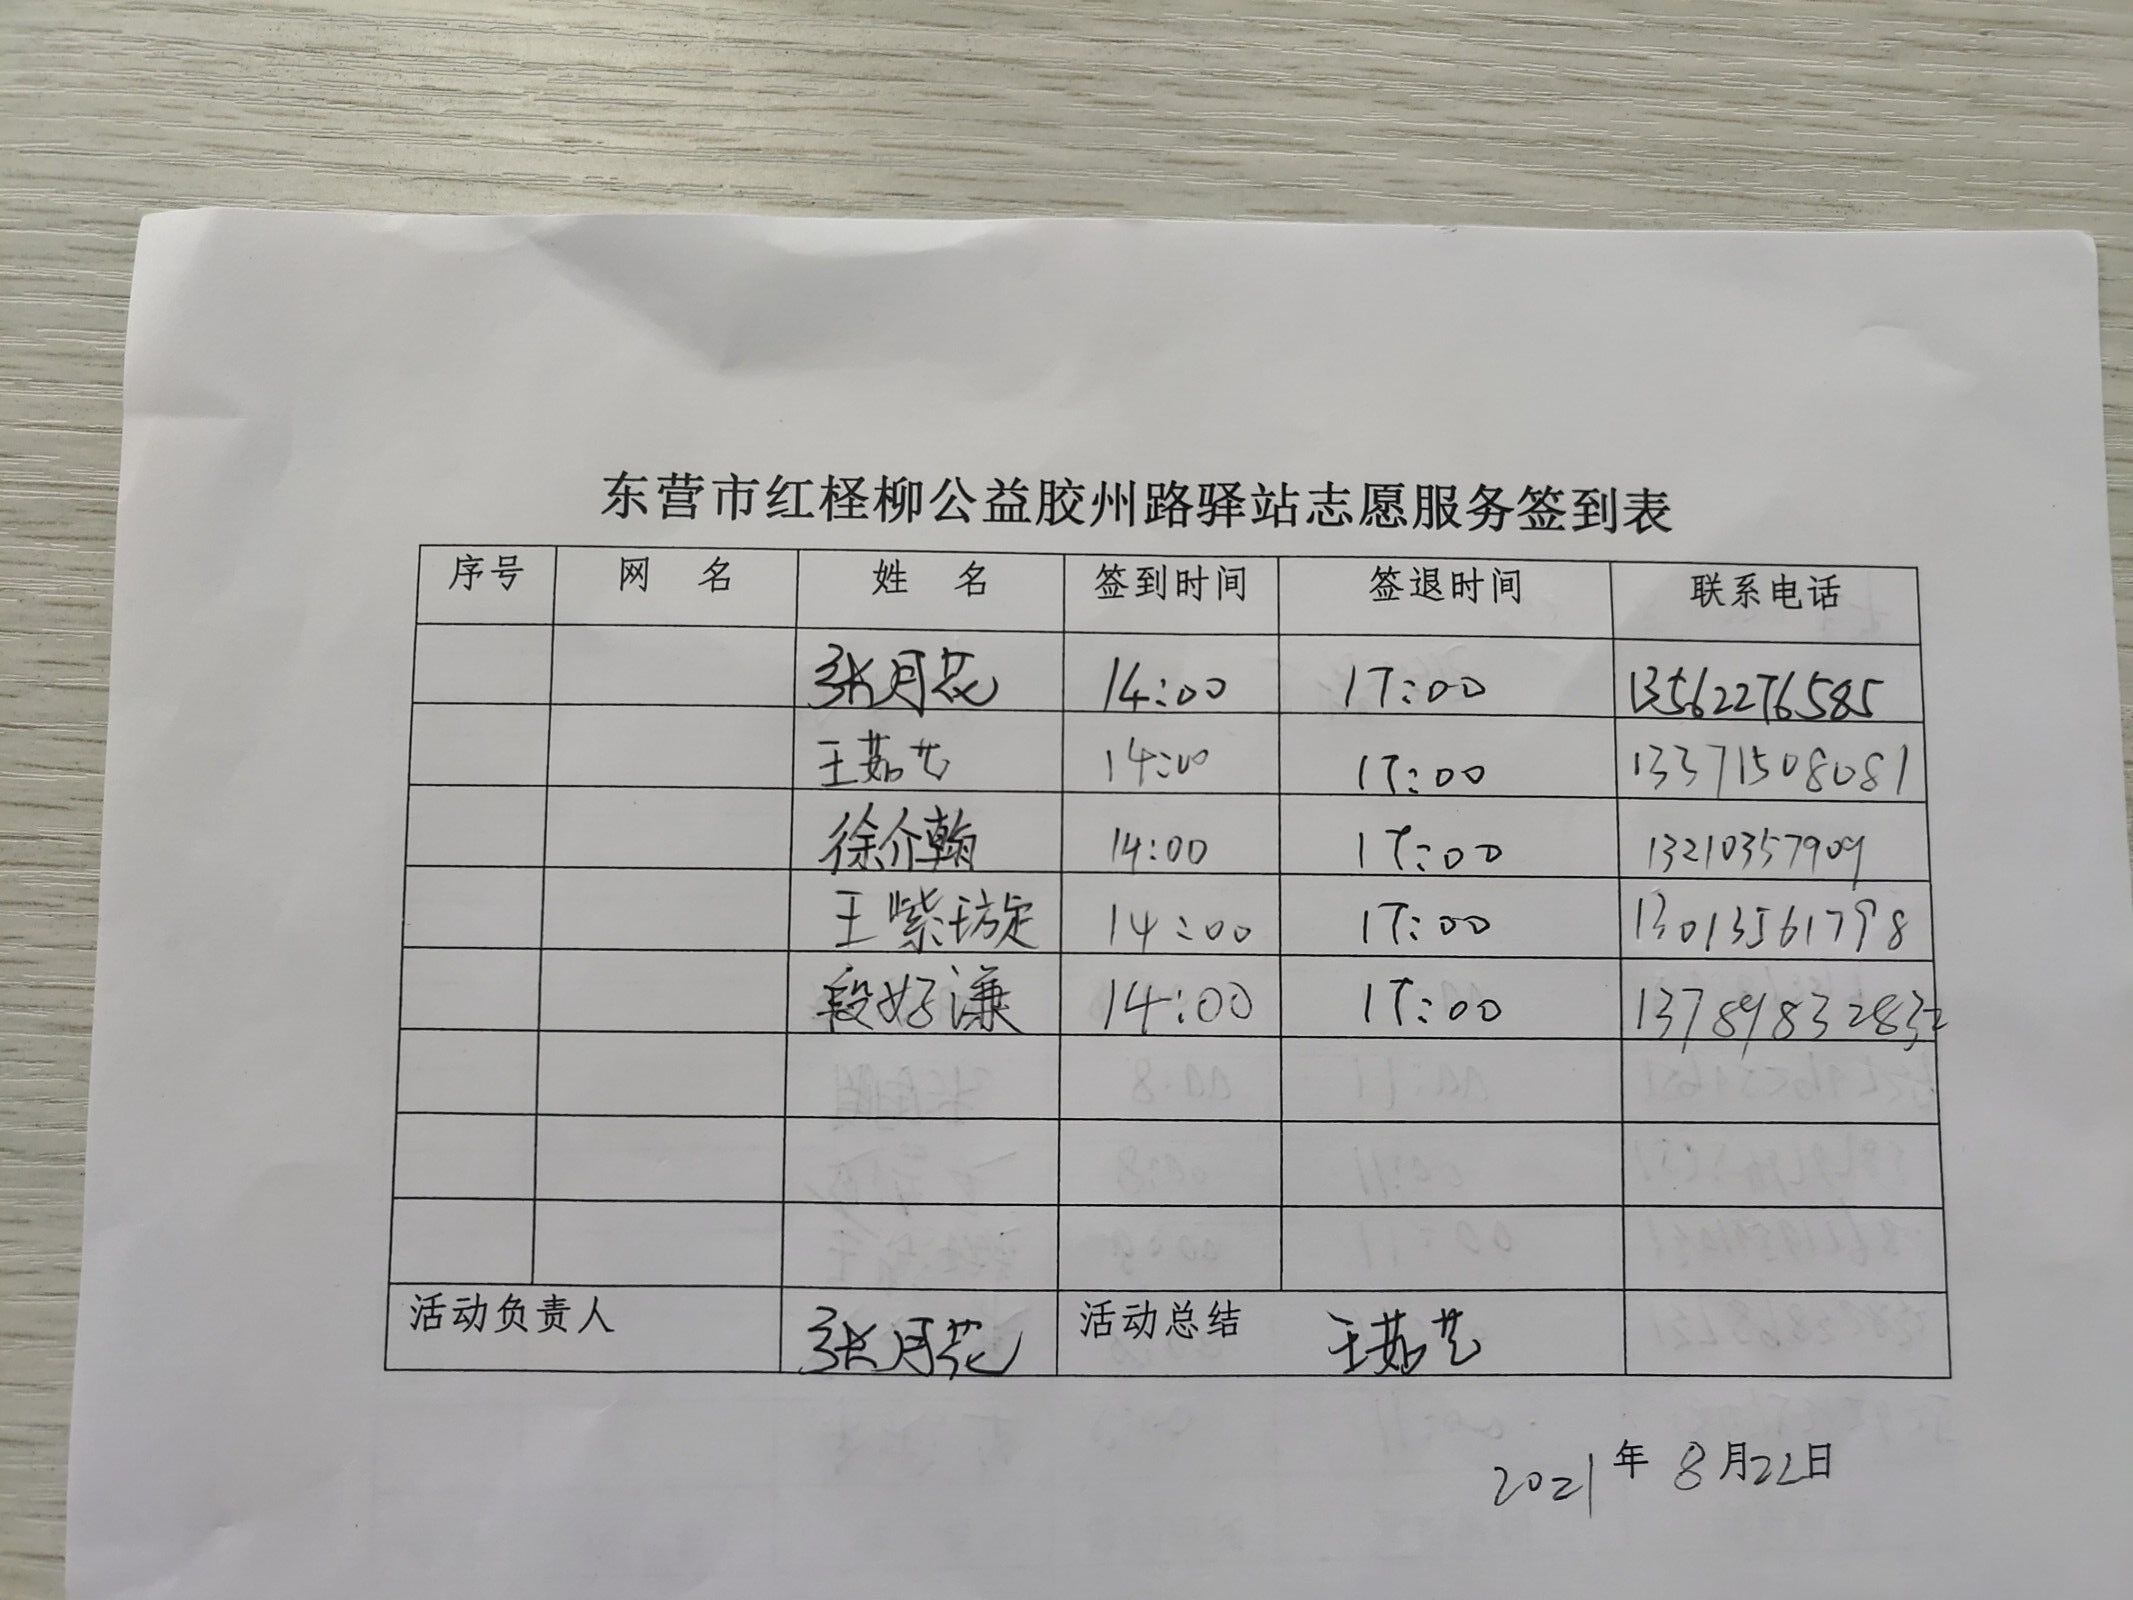 东营市红柽柳公益胶州路驿站志愿服务签到表
序号 网 名 姓 名 签到时间 签退时间 联系电话
张月花 14:00 17:00 13562276585
王茹艺 14:00 17:00 13371508081
徐介翰 14:00 17:00 13210357909
王紫璇 14:00 17:00 13013561798
段好谦 14:00 17:00 13789832832
活动负责人 张月花 活动总结 王茹艺
2021年 8月22日